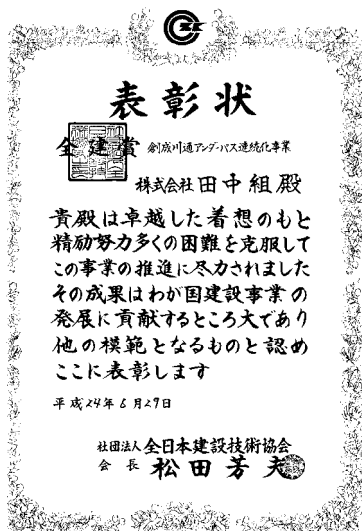 表彰状
全建賞 創成川通アンダーパス連続化事業
株式会社 田中組 殿
貴殿は卓越した着想のもと
精励努力多くの困難を克服して
この事業の推進に尽力されました
その成果はわが国建設事業の
発展に貢献するところ大であり
他の模範となるものと認め
ここに表彰します
平成24年6月29日
社団法人 全日本建設技術協会
会長 松田芳夫